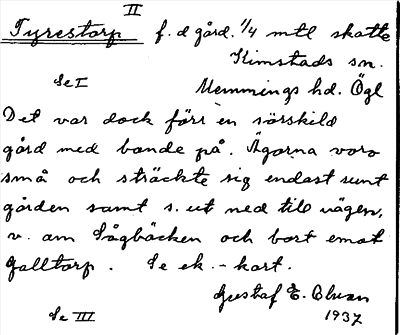 II
Tyrestorp f. d gård. 1/4 mtl skatte
Kimstads sn.
Se I Memmings hd. Ögl
Det var dock förr en särskild
gård med bonde på. Ägorna voro
små och sträckte sig endast runt
gården samt s. ut ned till vägen,
v. om Sågbäcken och bort emot
Galltorp. Se ek. - kart.
Gustaf E.
Se III 1937